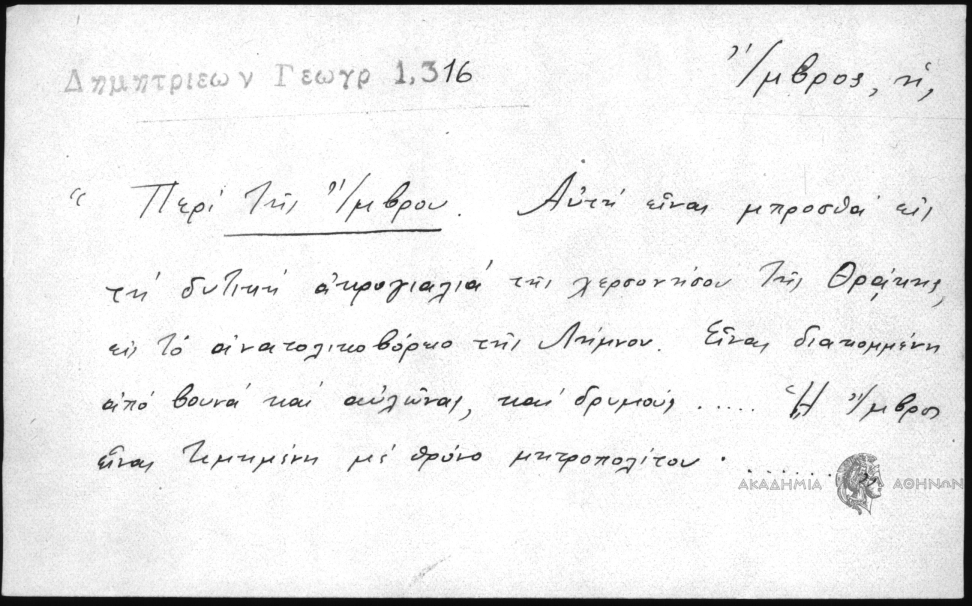 Δημητριεων Γεωγρ 1,316
Ἴμβρος, ἡ,
“ Περὶ τῆς Ἴμβρου. Αὐτὴ εἶναι μπροσθὰ εἰς
τὴ δυτικὴ ἀκρογιαλιὰ τῆς χερσονήσου τῆς Θράκης,
εἰς τὸ ἀνατολικοβόρειο τῆς Λήμνου. Εἶναι διακομμένη
ἀπὸ βουνὰ καὶ αὐλῶνας, καὶ δρυμοὺς ..... Ἡ Ἴμβρος
εἶναι τιμημένη μὲ θρόνο μητροπολίτου · ....... ”
ΑΚΑΔΗΜΙΑ ΑΘΗΝΩΝ